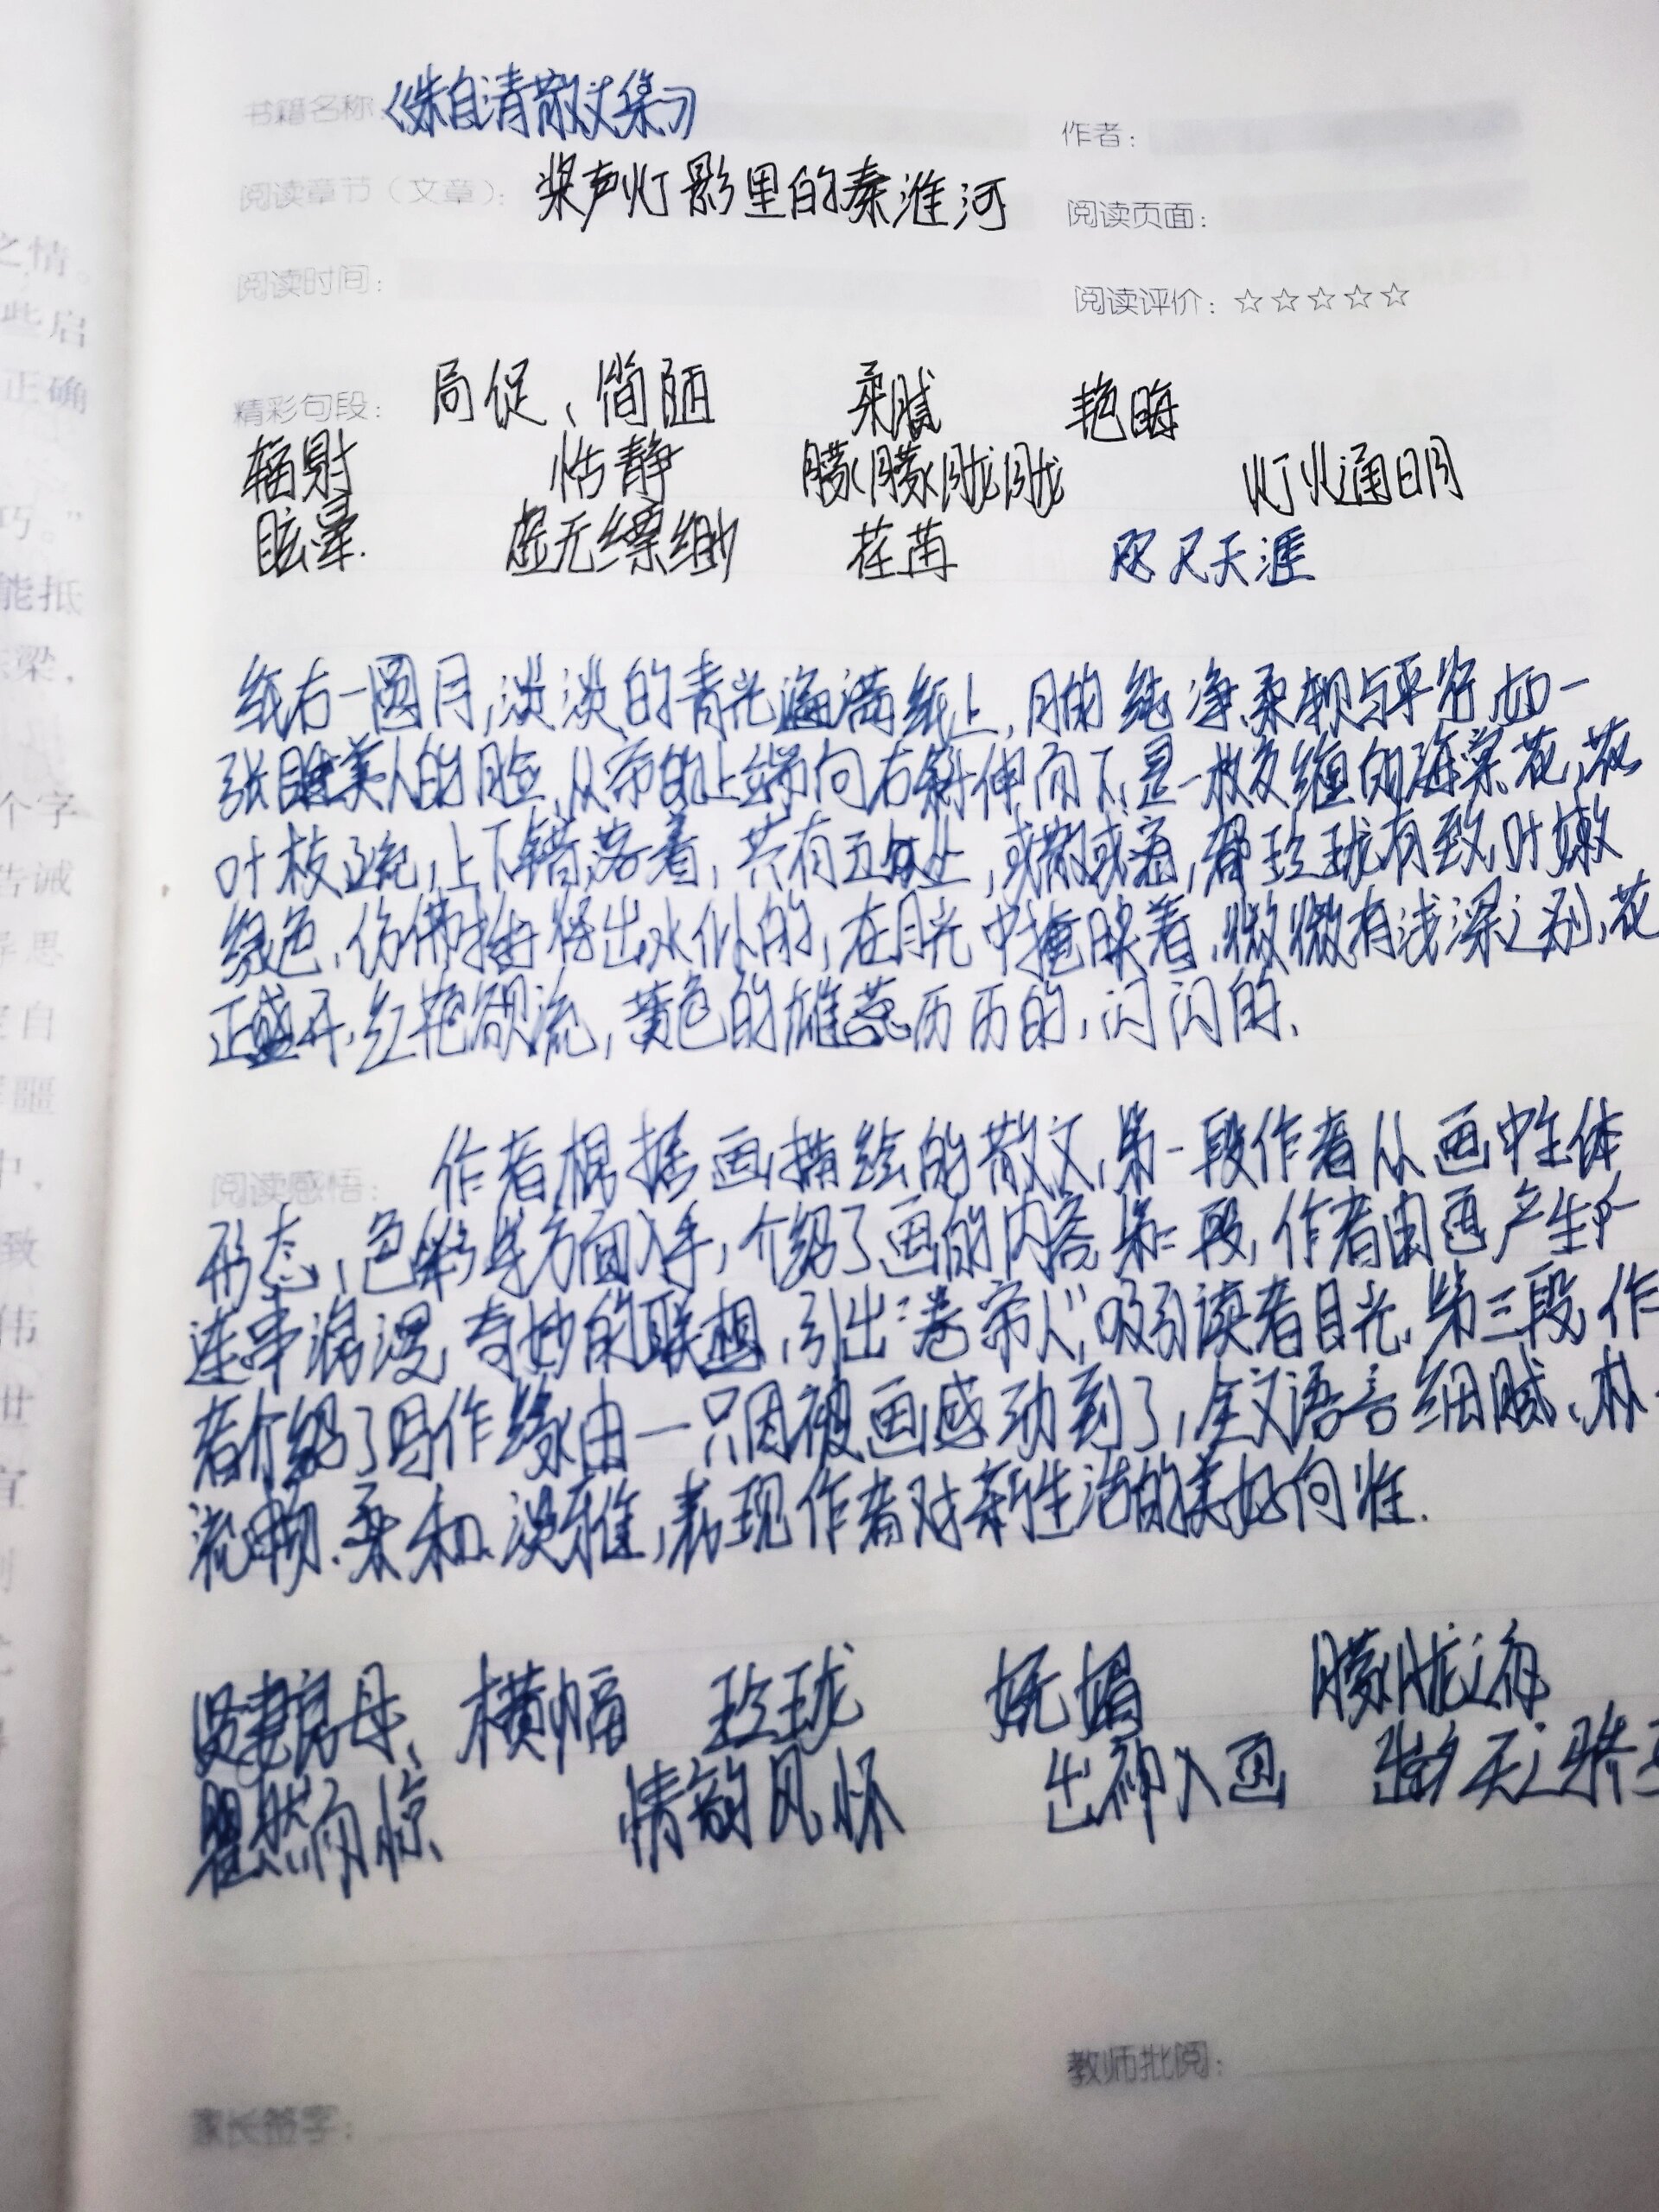 之情。
些启
正确
巧。”
能抵
梁，
个字
告诫
思
自
噩
中，
致
伟
世
宜
书籍名称：《朱自清散文集》 作者：
阅读章节（文章）：桨声灯影里的秦淮河 阅读页面：
阅读时间： 阅读评价：☆☆☆☆☆
精彩句段：局促、简陋 柔腻 艳晦
辐射 恬静 朦朦胧胧 灯火通明
眩晕. 虚无缥缈 荏苒 咫尺天涯
纸右一圆月,淡淡的青光遍满纸上,月的纯净、柔软与平和,如一
张睡美人的脸,从帘的上端向右斜伸而下,是一枝交缠的海棠花,花
叶枝疏,上下错落着,共有五处,或散或密,都玲珑有致,叶嫩
绿色,仿佛掐得出水似的,在月光中掩映着,微微有浅深之别,花
正盛开,红艳欲流,黄色的雄蕊历历的,闪闪的.
阅读感悟：作者根据画描绘的散文,第一段作者从画中主体
形态,色彩等方面入手,介绍了画的内容.第二段,作者由画产生一
连串浪漫,奇妙的联想,引出“卷帘人”,吸引读者目光,第三段,作
者介绍了写作缘由一只因被画感动到了,全文语言细腻、朴
流畅.柔和.淡雅,表现作者对新生活的美好向往.
贤妻良母、 横幅 玲珑 妩媚 朦胧之夜
瞿然而惊 情韵风怀 出神入画 天之骄
教师批阅：
家长签字：